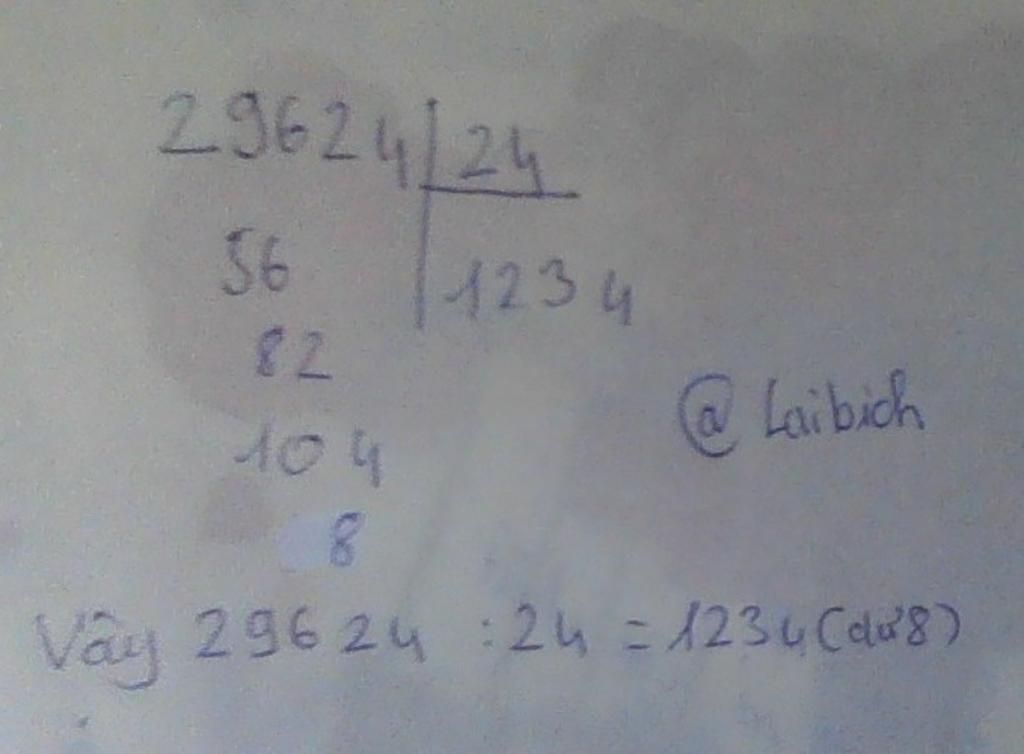 29624 24
56 1234
82
104
@ Laibich
8
Vây 29624 : 24 = 1234 (dư 8)